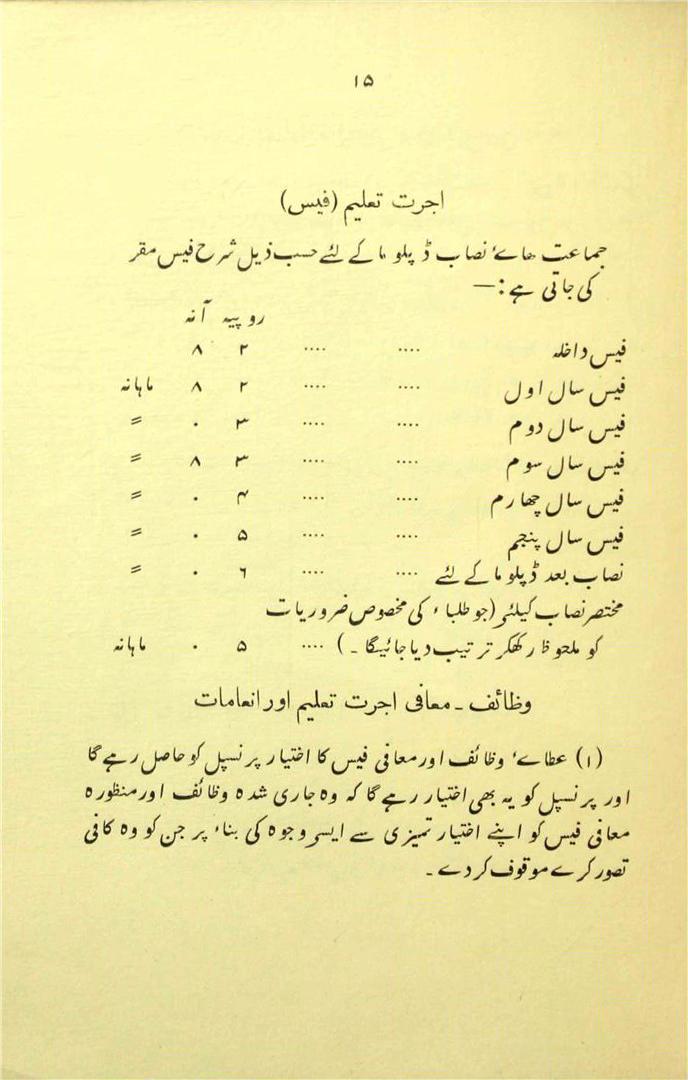 ۱۵
اجرت تعلیم (فیس)
جماعت ھاۓ نصاب ڈپلوما کے لئے حسب ذیل شرح فیس مقر
کی جاتی ہے :—
روپیہ آنہ
فیس داخلہ .... .... ۲ ۸
فیس سال اول .... .... ۲ ۸ ماہانہ
فیس سال دوم .... .... ۳ ۰ 〃
فیس سال سوم .... .... ۳ ۸ 〃
فیس سال چھارم .... .... ۴ ۰ 〃
فیس سال پنجم .... .... ۵ ۰ 〃
نصاب بعد ڈپلوما کے لئے .... .... ۶ ۰ 〃
مختصر نصاب کیلئے (جو طلباء کی مخصوص ضروریات
کو ملحوظ رکھکر ترتیب دیا جائیگا ۔) .... ۵ ۰ ماہانہ
وظائف ۔ معافی اجرت تعلیم اور انعامات
(۱) عطاۓ وظائف اور معافی فیس کا اختیار پرنسپل کو حاصل رہے گا
اور پرنسپل کو یہ بھی اختیار رہے گا کہ وہ جاری شدہ وظائف اور منظورہ
معافی فیس کو اپنے اختیار تمیزی سے ایسے وجوہ کی بناء پر جن کو وہ کافی
تصور کرے موقوف کر دے ۔